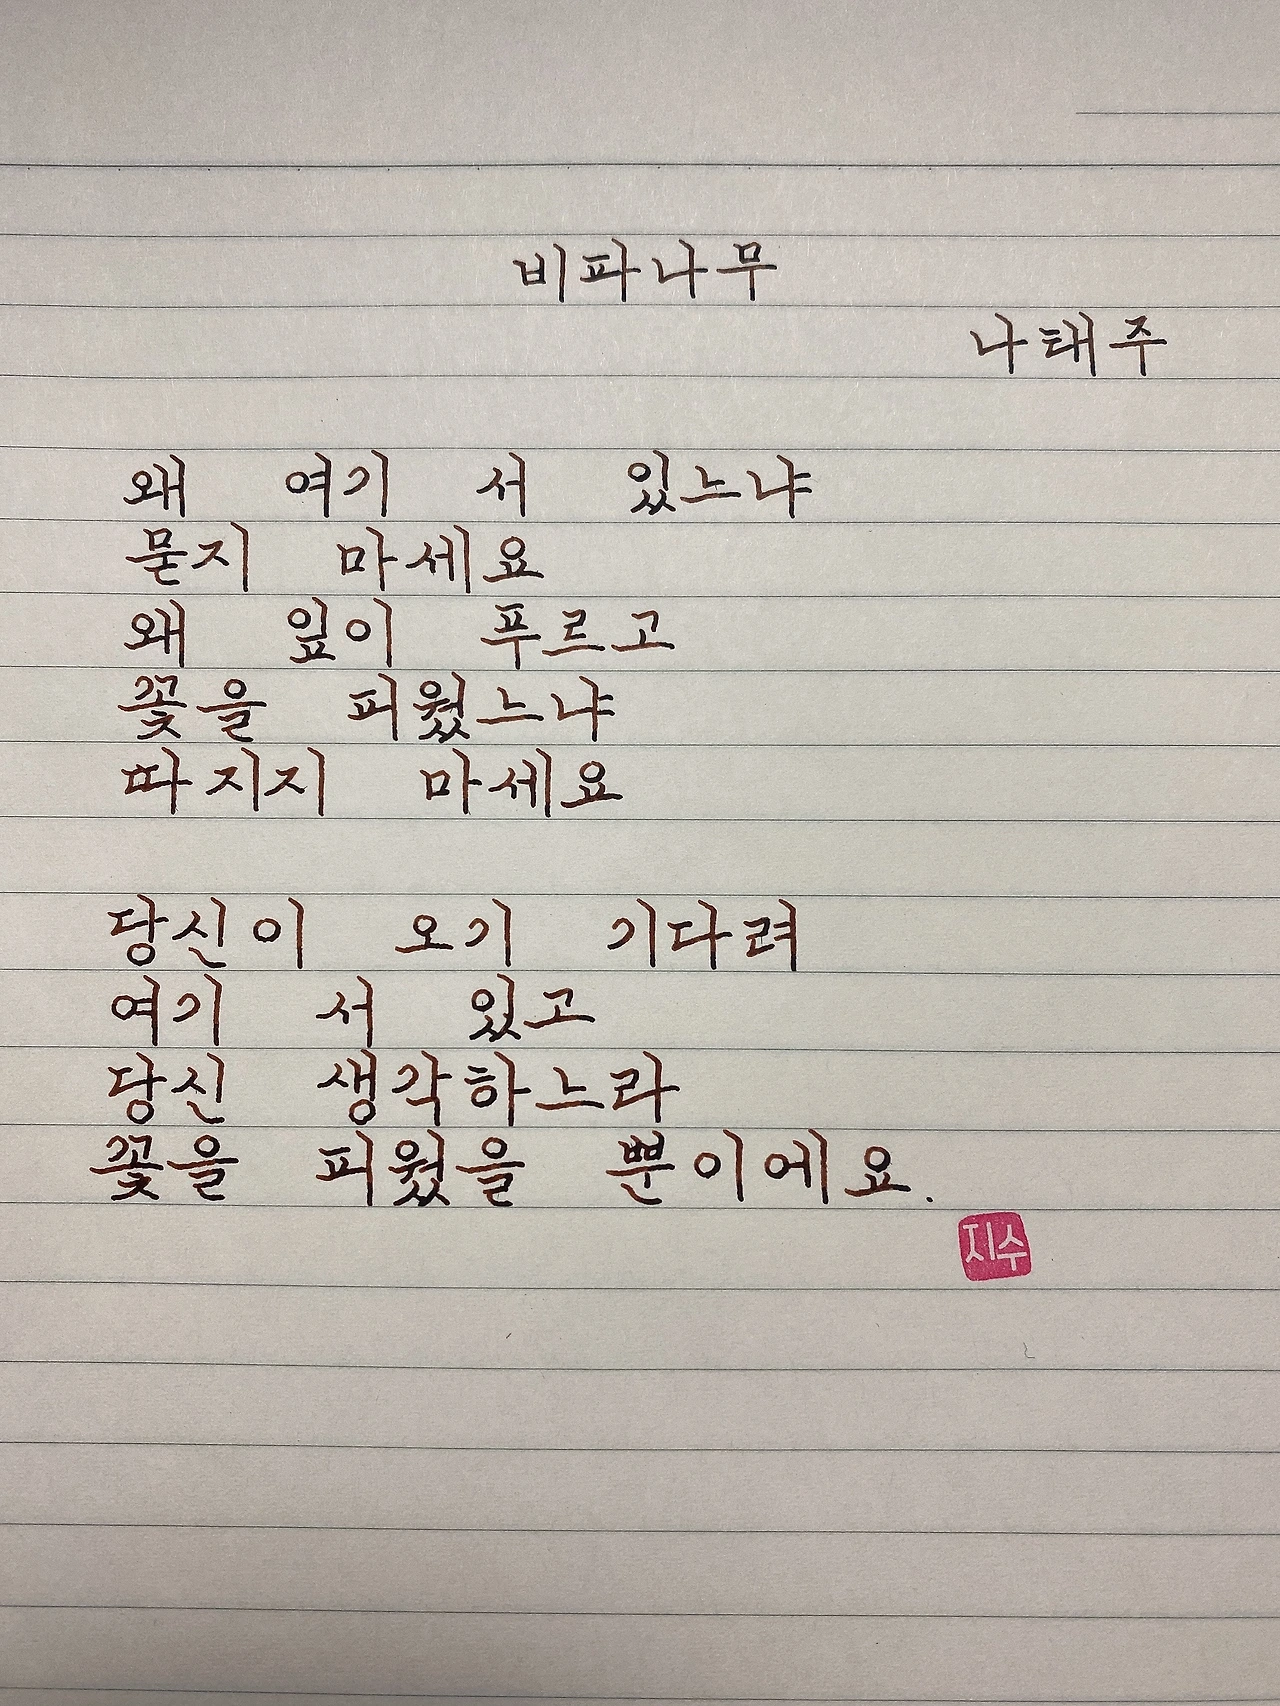 비파나무
나태주
왜 여기 서 있느냐
묻지 마세요
왜 잎이 푸르고
꽃을 피웠느냐
따지지 마세요
당신이 오기 기다려
여기 서 있고
당신 생각하느라
꽃을 피웠을 뿐이에요.
지수